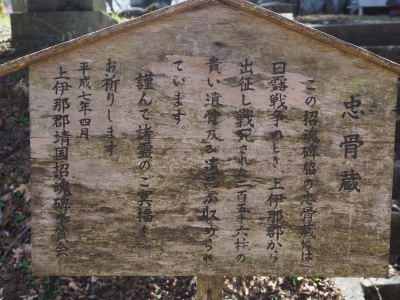 忠骨蔵
この招魂碑脇の忠骨蔵には
日露戦争のとき上伊那郡から
出征し戦死された二百五十六柱の
貴い遺骨及び遺品が収められ
ています
謹んで諸霊のご冥福を
お祈りします。
平成七年四月
上伊那郡靖国招魂碑委員会